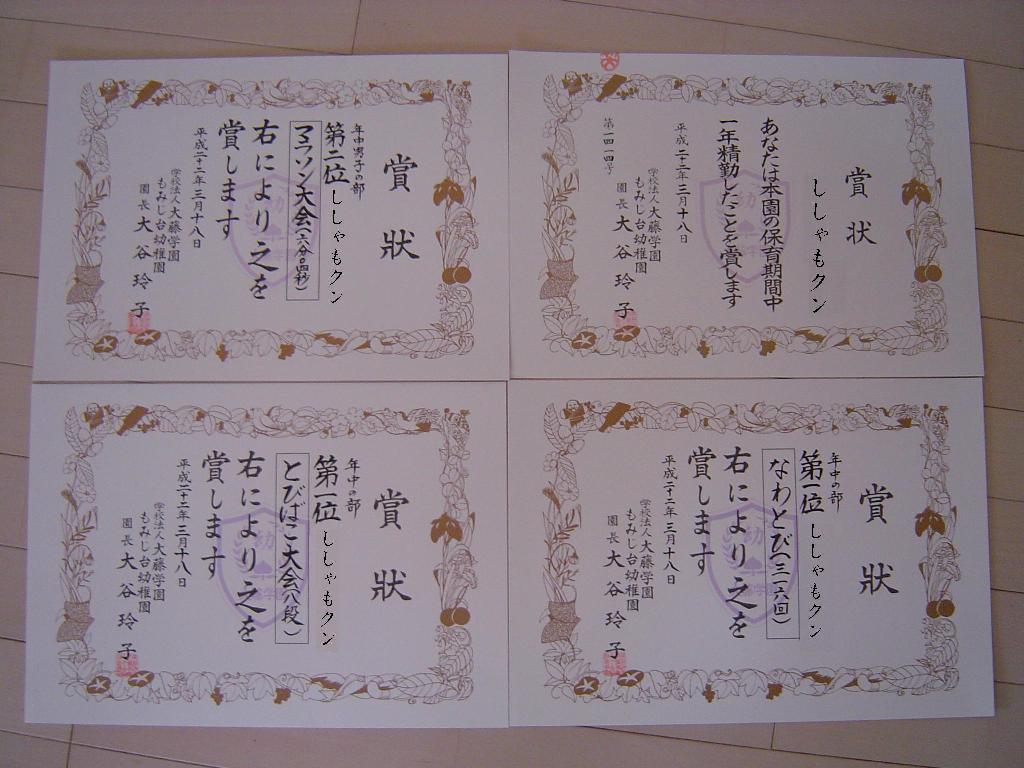 賞狀
年中男子の部
第二位 ししゃもクン
マラソン大会(六分〇四秒)
右により之を
賞します
平成二十二年三月十八日
学校法人大藤学園
もみじ台幼稚園
園長 大谷玲子
賞状
ししゃもクン
あなたは本園の保育期間中
一年精勤したことを賞します
平成二十二年三月十八日
学校法人大藤学園
もみじ台幼稚園
園長 大谷玲子
第一四一四号
賞狀
年中の部
第一位 ししゃもクン
とびばこ大会(八段)
右により之を
賞します
平成二十二年三月十八日
学校法人大藤学園
もみじ台幼稚園
園長 大谷玲子
賞狀
年中の部
第一位 ししゃもクン
なわとび(三一六回)
右により之を
賞します
平成二十二年三月十八日
学校法人大藤学園
もみじ台幼稚園
園長 大谷玲子